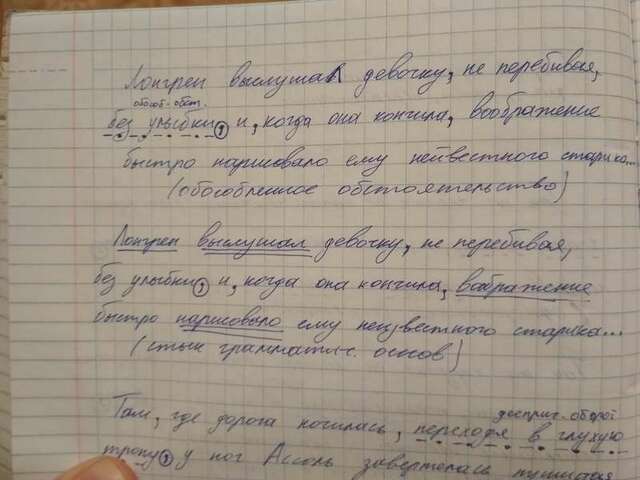 Лонгрен выслушал девочку, не перебивая,
обособ. обст.
без улыбки, и, когда она кончила, воображение
быстро нарисовало ему неизвестного старика...
(обособленное обстоятельство)
Лонгрен выслушал девочку, не перебивая,
без улыбки, и, когда она кончила, воображение
быстро нарисовало ему неизвестного старика...
(стык граммат. основ)
дееприч. оборот
Там, где дорога кончилась, переходя в глухую
тропу, у ног Ассоль завертелась пушистая